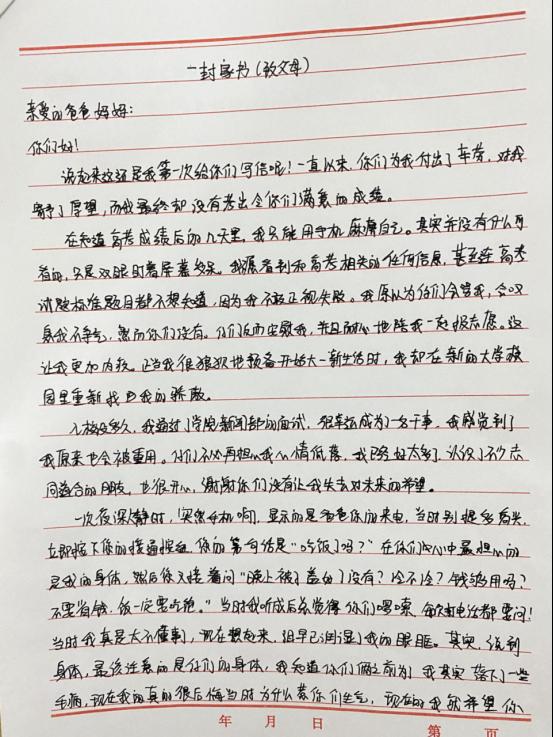 一封家书(致父母)
亲爱的爸爸妈妈:
你们好!
说起来这还是我第一次给你们写信呢!一直以来,你们为我付出了辛劳,对我
寄予了厚望,而我最终却没有考出令你们满意的成绩。
在知道高考成绩后的几天里,我只能用手机麻痹自己。其实并没有什么可
看的,只是双眼盯着屏幕发呆。我屏看到和高考相关的任何信息,甚至连高考
试题标准题目都不想知道,因为我不敢正视失败。我原以为你们会骂我,会叹
息我不争气,然而你们没有。你们反而安慰我,并且耐心地陪我一起报志愿。这
让我更加内疚。正当我很狼狈地预备开始大一新生活时,我却在新的大学校
园里重新找回我的骄傲。
入校没多久,我通过了学院新闻部的面试,很幸运成为一名干事。我感觉到了
我原来也会被重用。你们不必再担心我心情低落,我已经好太多了,认识了不少志
同道合的朋友,也很开心,谢谢你们没有让我失去对未来的希望。
一次夜深人静时,突然手机响,显示的是爸爸你的来电,当时别提多高兴,
立即按下你的接通按钮,你的第一句话是"吃饭了吗?"在你们心中最担心的
是我的身体,然后你又接着问"晚上被子盖的了没有?冷不冷?钱够用吗?
不要省钱,饭一定要吃饱。"当时我听成后总觉得你们啰嗦,每次打电话都要问!
当时我真是太不懂事,现在想起来,泪早已润湿了我的眼眶。其实,说到
身体,最该注意的是你们的身体,我知道你们俩之前为了我其实落下了一些
毛病,现在我的真的很后悔当时为什么惹你们生气,现在的我就希望你
年 月 日
第 页